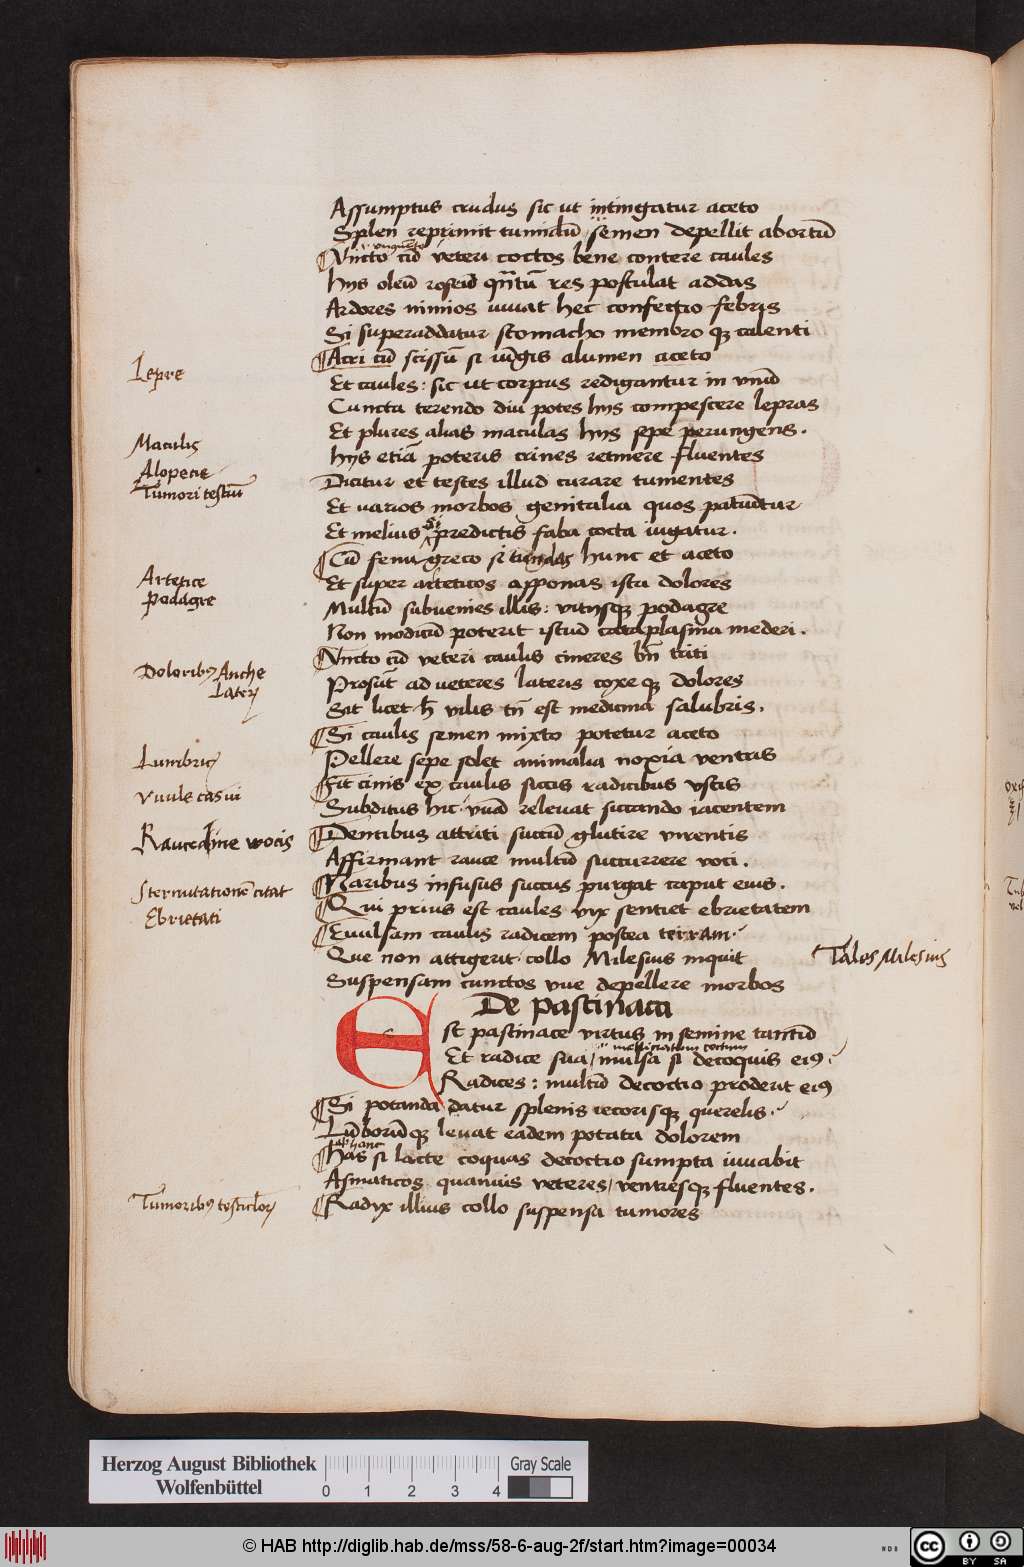 Assumptus crudus sic ut intingatur aceto
Splen reprimit tumidū / semen depellit abortū
ungūeto
Uncto cū veteri coctos bene contere caules
Hijs oleū roseūd qn̄tū res postulat addas
Ardores nimios iuuat hec confectio febris
Si superaddatur stomacho membro qꝫ calenti
Acri cū scissū si iūgis alumen aceto
Lepre
Et caules: sic ut corpus redigantur in unū
Cuncta terendo diu potes hijs compescere lepras
Maculis
Et plures alias maculas hijs sepe perungens.
Alopecie
Hijs etiā poteris crines retinere fluentes
Tumori testiū
Dicitur et testes illud curare tumentes
Et varios morbos genitalia quos patiūtur
Et melius si predictis faba cocta iugatur.
Cū fenu greco si tundas hunc et aceto
Artetice
Et super arteticos apponas ista dolores
Podagre
Multū subuenies illis: vitijsqꝫ podagre
Non modicū poterit istud cataplasma mederi.
Uncto cū veteri caulis cineres bn̄ triti
Doloribꝰ Anche
Laterꝭ
Prosūt ad veteres lateris coxe qꝫ dolores
Sit licet h̄ vilis tn̄ est medicina salubris.
Si caulis semen mixto potetur aceto
Lumbricꝭ
Pellere sepe solet animalia noxia ventris
Fit cinis ex caulis siccis radicibus ustis
Vuule casui
Subditus hic uuā releuat siccando iacentem
Raucedine vocis
Dentibus attriti succū glutire virentis
Affirmant rauce multū succurrere voci.
Sternutationē citat
Naribus infusus succus purgat caput eius.
Ebrietati
Qui prius est caules vix sentiet ebrietatem
Euulsam caulis radicem postea terram
Que non attigerit collo Milesius inquit
Tales Milesius
Suspensam cunctos uue depellere morbos
De pastinaca
Est pastinace virtus in semine tantū
Et radice sua / mulsa si decoquis eiꝰ
Radices: multū decoctio proderit eiꝰ
Si potanda datur splenis iecorisqꝫ querelis.
Lūborūqꝫ leuat eadem potata dolorem
Has si lacte coquas decoctio sumpta iuuabit
Asmaticos quamuis veteres / ventresqꝫ fluentes.
Tumoribꝰ testiclorꝭ
Radyx illius collo suspensa tumores
Herzog August Bibliothek
Wolfenbüttel
0 1 2 3 4
Gray Scale
© HAB http://diglib.hab.de/mss/58-6-aug-2f/start.htm?image=00034
cc BY SA